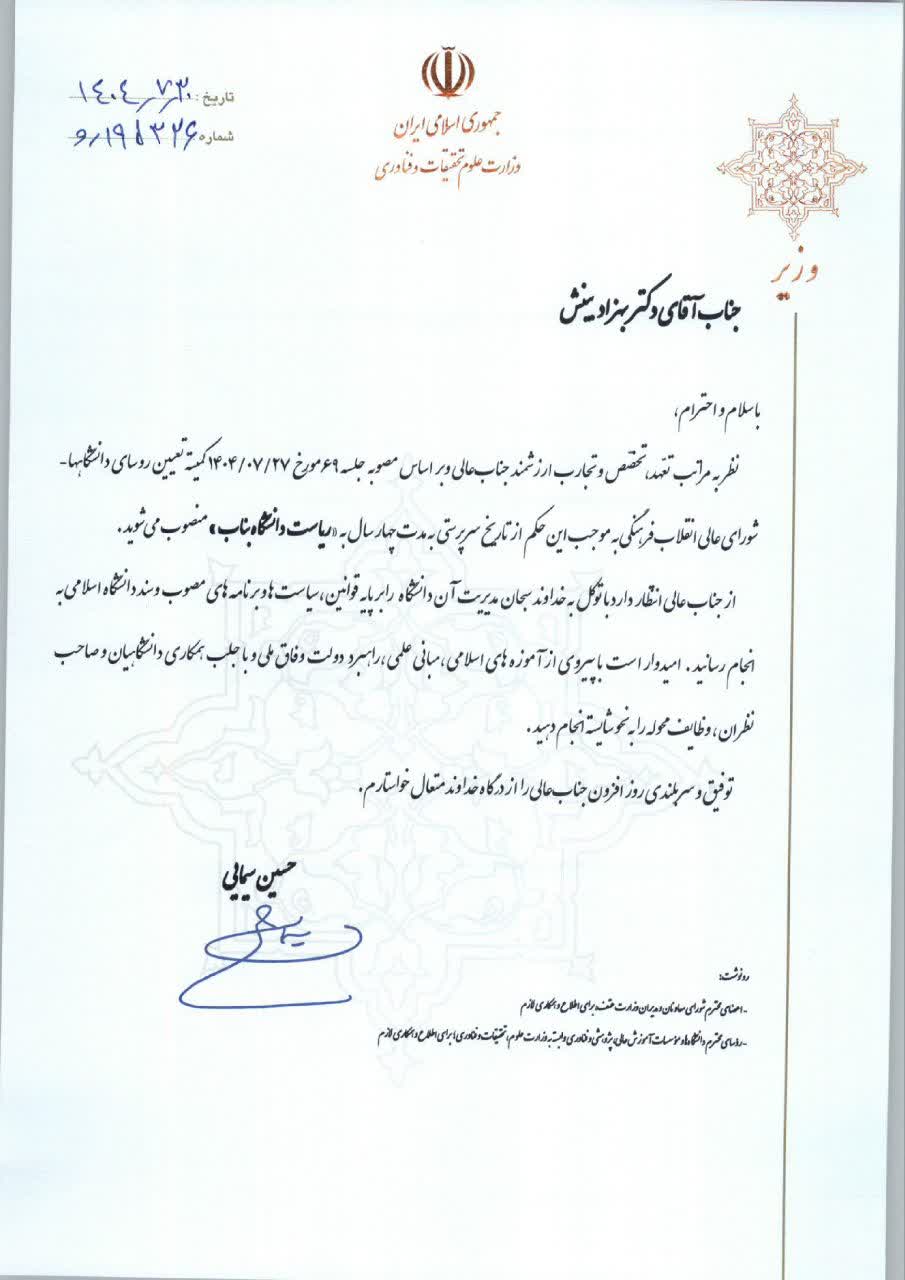 جمهوری اسلامی ایران
وزارت علوم تحقیقات و فناوری
تاریخ: ۱۴۰۴/۷/۳۰
شماره ۱۹۵۳۲۶/و
وزیر
جناب آقای دکتر بهزاد بینش
باسلام و احترام،
نظر به مراتب تعهد، تخصص و تجارب ارزشمند جناب‌عالی و بر اساس مصوبه جلسه ۶۹ مورخ ۱۴۰۴/۰۷/۲۷ کمیته تعیین روسای دانشگاهها-
شورای عالی انقلاب فرهنگی به موجب این حکم از تاریخ سرپرستی به مدت چهار سال به «ریاست دانشگاه بناب» منصوب می‌شوید.
از جناب عالی انتظار دارد با توکل به خداوند سبحان مدیریت آن دانشگاه را بر پایه قوانین، سیاست ها و برنامه های مصوب و سند دانشگاه اسلامی به
انجام رسانید. امیدوار است با پیروی از آموزه های اسلامی، مبانی علمی، راهبرد دولت وفاق ملی و با جلب همکاری دانشگاهیان و صاحب
نظران، وظایف محوله را به نحو شایسته انجام دهید.
توفیق و سربلندی روز افزون جناب‌عالی را از درگاه خداوند متعال خواستارم.
حسین سیمایی
رونوشت:
-اعضای محترم شورای معاونان و مدیران وزارت عتف، برای اطلاع و همکاری لازم
-رؤسای محترم دانشگاه‌ها و مؤسسات آموزش عالی، پژوهشی و فناوری وابسته به وزارت علوم، تحقیقات و فناوری، برای اطلاع و همکاری لازم